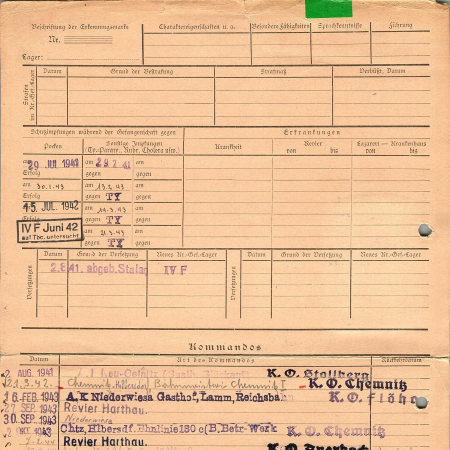 Beschriftung der Erkennungsmarke
Nr.
Lager:
Charaktereigenschaften u. a.
Besondere Fähigkeiten
Sprachkenntnisse
Führung
Strafen im Kr.-Gef.-Lager
Datum
Grund der Bestrafung
Strafmaß
Verbüßt, Datum
Schutzimpfungen während der Gefangenschaft gegen
Erkrankungen
Pocken
Sonstige Impfungen
(Ty.-Paraty., Ruhr, Cholera usw.)
Krankheit
Revier
von bis
Lazarett — Krankenhaus
von bis
am 29. JUL 1941
am 29.7.41
am
Erfolg
gegen
gegen
am 30.1.43
am 13.2.43
am
Erfolg
gegen TY
gegen
am 15. JUL. 1942
am
am
Erfolg
gegen TY
gegen
IV F Juni 42
auf Tbc. untersucht
am 21.3.43
am
gegen TY
gegen
Versetzungen
Datum
Grund der Versetzung
Neues Kr.-Gef.-Lager
Versetzungen
Datum
Grund der Versetzung
Neues Kr.-Gef.-Lager
2.8.41. abgeb. Stalag IV F
Kommandos
Datum
Art des Kommandos
Rückkehrdatum
2. AUG. 1941
K. O. Stollberg
21.3.42.
Chemnitz
Chemnitz I
K. O. Chemnitz
16. FEB. 1943
A.K Niederwiesa Gasthof, Lamm, Reichsba.
K. O. Flöha
27. SEP. 1943
Revier Harthau.
30. SEP. 1943
Niederwiesa
1943
Chtz. Hbersdf. Bhnlinie 180 c (B, Betr-Werk
K. O. Chemnitz
Revier Harthau.
K. O. Auerbach